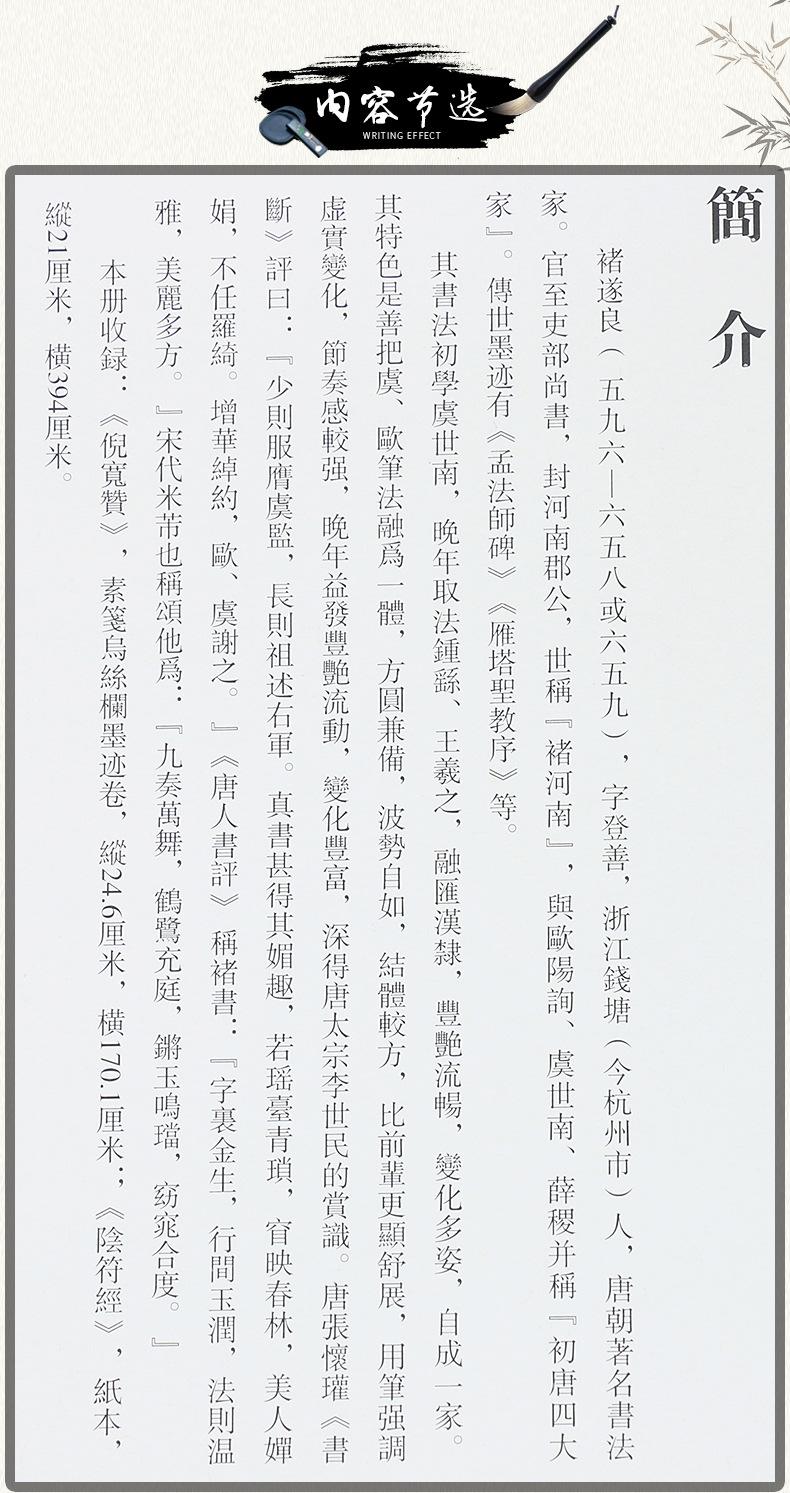 内容节选
WRITING EFFECT
簡介
褚遂良(五九六—六五八或六五九),字登善,浙江錢塘(今杭州市)人,唐朝著名書法
家。官至吏部尚書,封河南郡公,世稱『褚河南』,與歐陽詢、虞世南、薛稷并稱『初唐四大
家』。傳世墨迹有《孟法師碑》《雁塔聖教序》等。
其書法初學虞世南,晚年取法鍾繇、王羲之,融匯漢隸,豐艷流暢,變化多姿,自成一家。
其特色是善把虞、歐筆法融爲一體,方圓兼備,波勢自如,結體較方,比前輩更顯舒展,用筆强調
虚實變化,節奏感較强,晚年益發豐艷流動,變化豐富,深得唐太宗李世民的賞識。唐張懷瓘《書
斷》評曰:『少則服膺虞監,長則祖述右軍。真書甚得其媚趣,若瑶臺青瑣,窅映春林,美人嬋
娟,不任羅綺。增華綽約,歐、虞謝之。』《唐人書評》稱褚書:『字裏金生,行間玉潤,法則温
雅,美麗多方。』宋代米芾也稱頌他爲:『九奏萬舞,鶴鷺充庭,鏘玉鳴璫,窈窕合度。』
本册收録:《倪寬贊》,素箋烏絲欄墨迹卷,縱24.6厘米,横170.1厘米;《陰符經》,紙本,
縱21厘米,横394厘米。